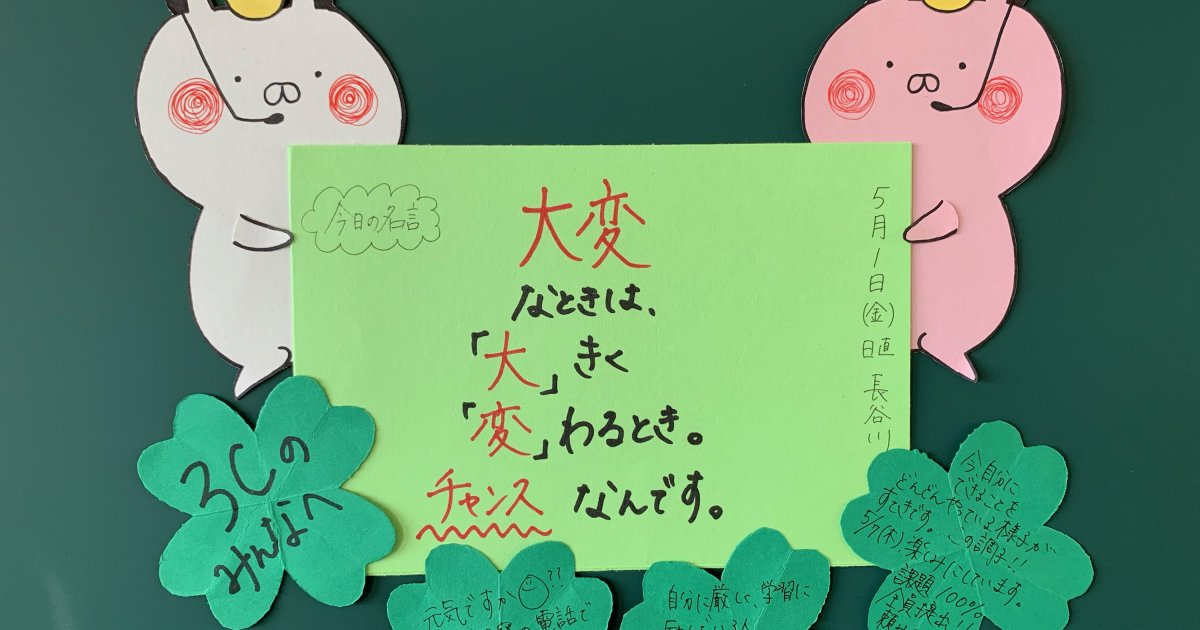 今日の名言
大変
なときは、
「大」きく
「変」わるとき。
チャンス なんです。
5月1日(金) 日直 長谷川
3Cの
みんなへ
元気ですか??
電話で
自分に厳しく、学習に
今、自分に
できることを
どんどんやっている様子が
すてきです。この調子!!
5/7(木)、楽しみにしています。
課題100%
全員提出!!